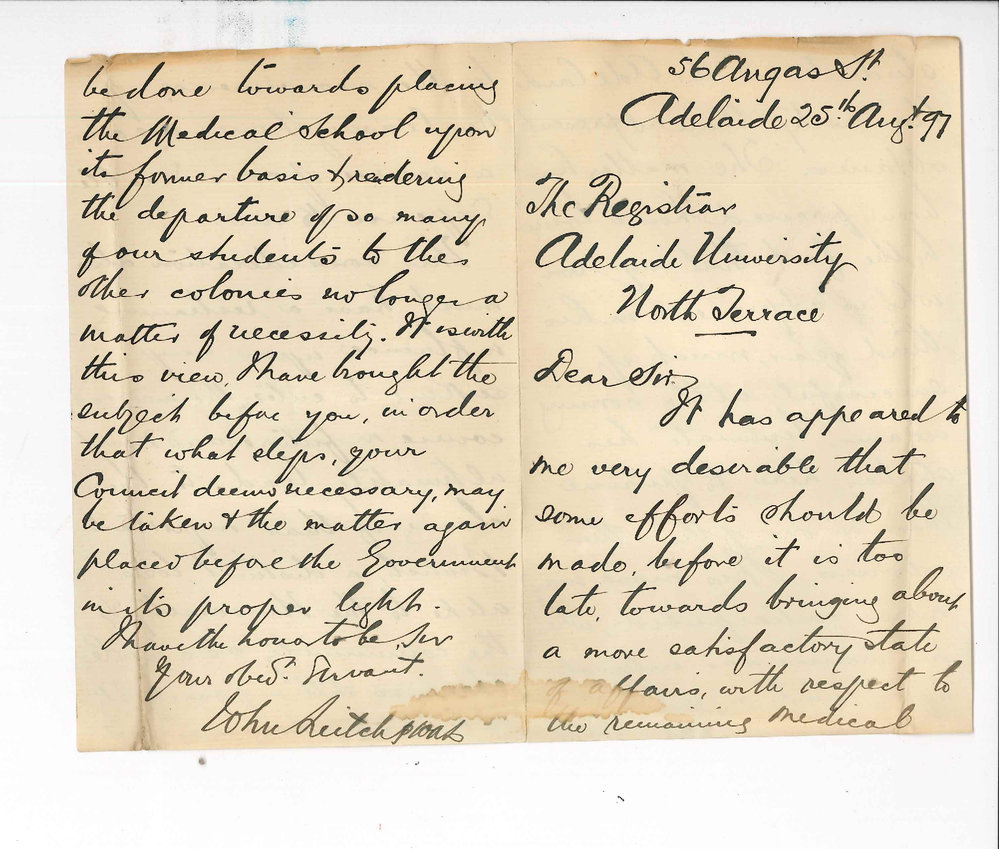 56 Angas St.
Adelaide 25th Augt. 97
The Registrar
Adelaide University
North Terrace
Dear Sir,
It has appeared to
me very desirable that
some efforts should be
made, before it is too
late, towards bringing about
a more satisfactory state
of affairs, with respect to
the remaining medical
be done towards placing
the Medical School upon
its former basis & rendering
the departure of so many
of our students to the
other colonies no longer a
matter of necessity. It is with
this view, I have brought the
subject before you, in order
that what steps, your
Council deems necessary, may
be taken & the matter again
placed before the Government
in its proper light.
I have the honor to be, Sir
Your obedt. Servant.
John Leitch